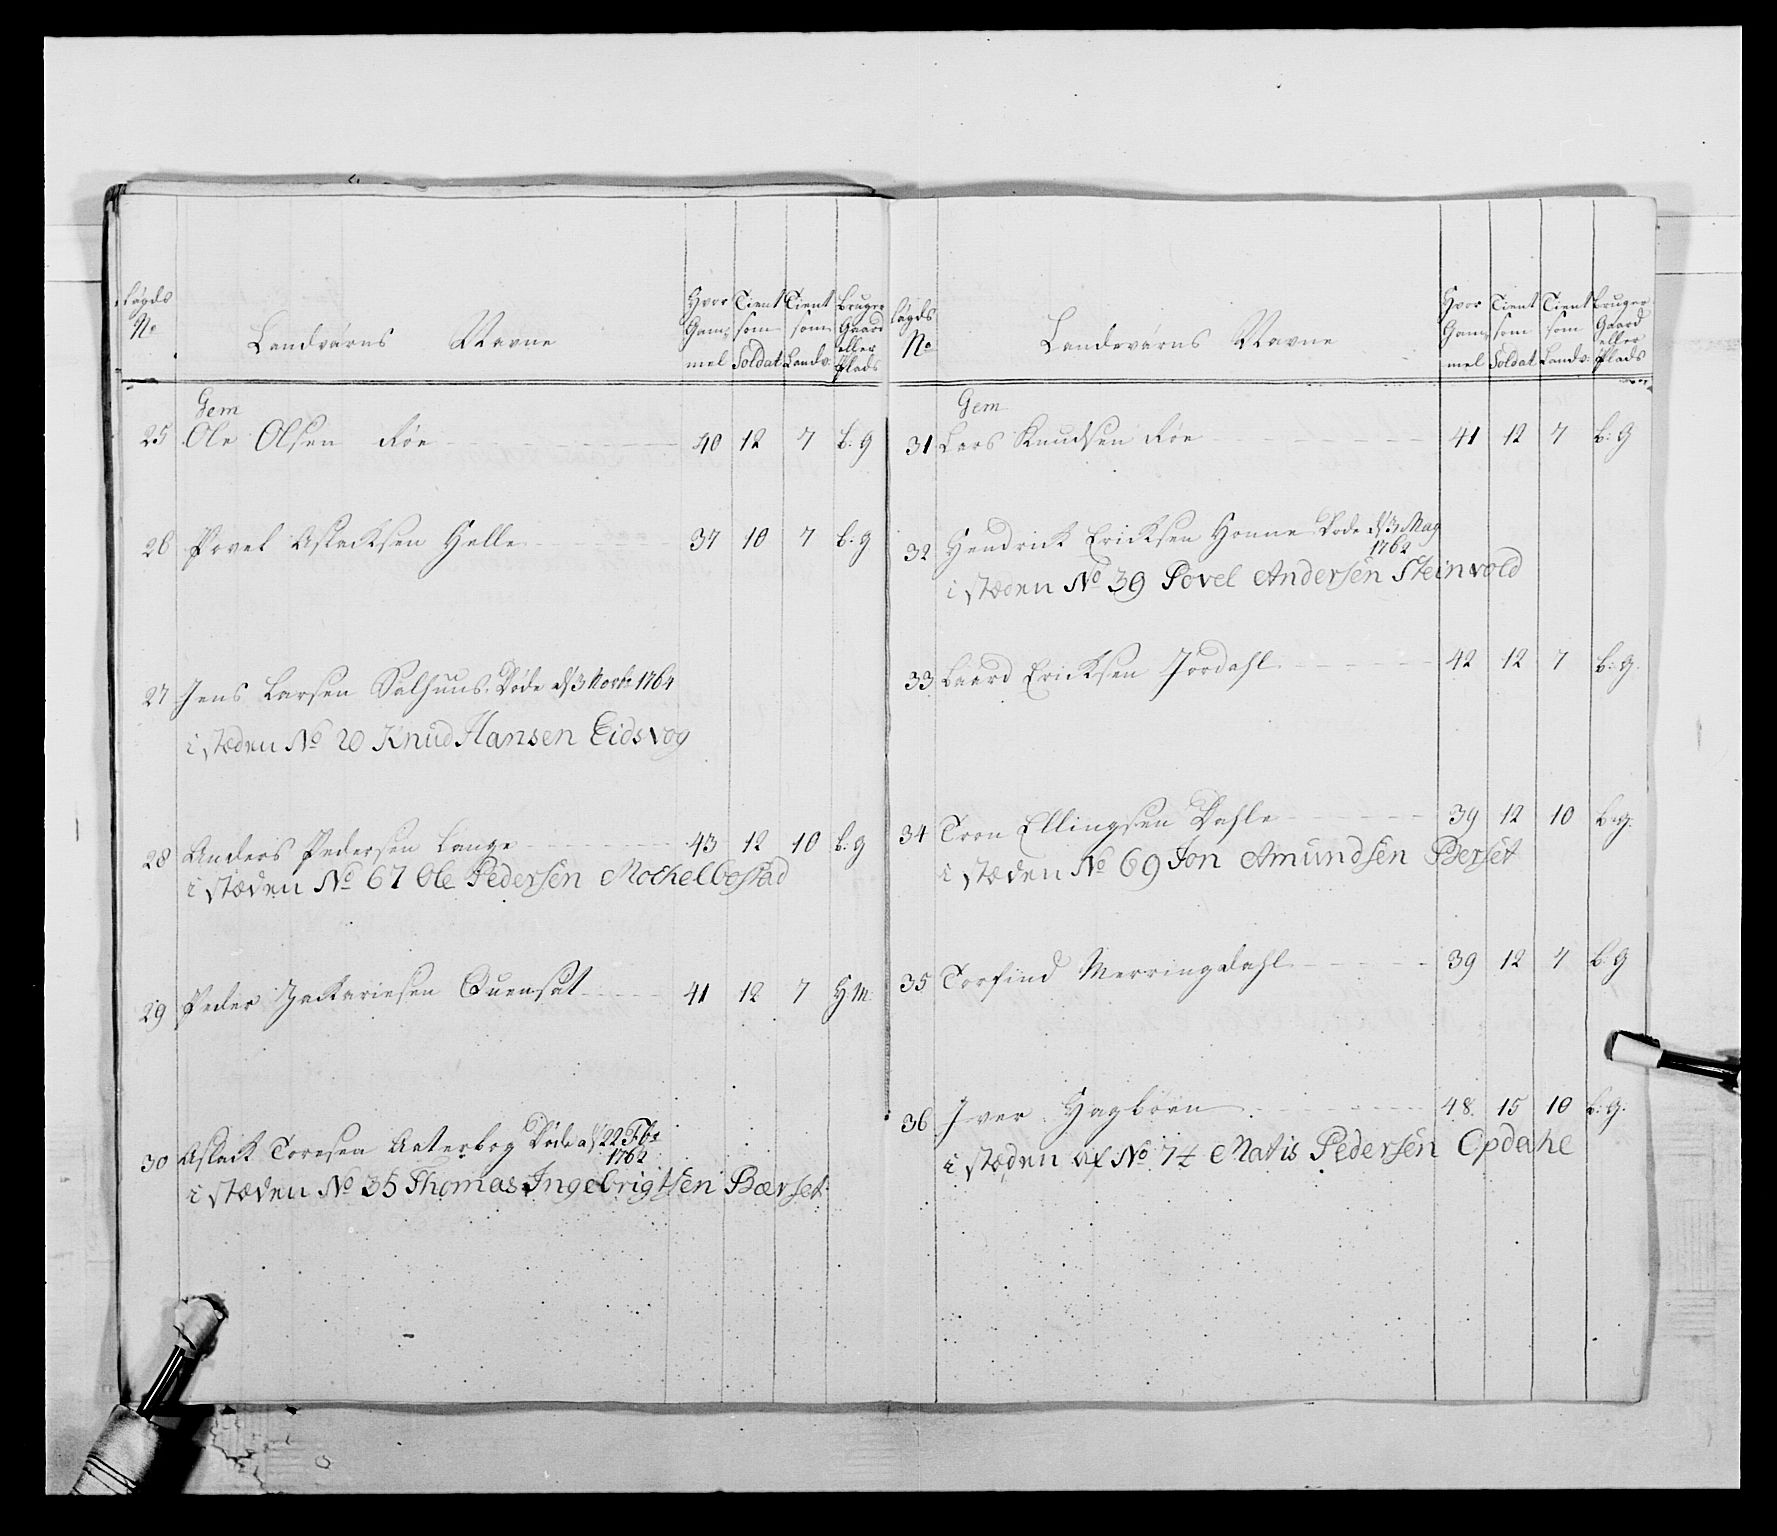 Lægds No
Landværns Navne
Hvor Gam: mel
Tient som Soldat
Tient som Landv:
Bruger Gaard eller Plads
Gem
25 Ole Olsen Røe 40 12 7 b: g
26 Povel Aslacksen Helle 37 10 7 b. g
27 Jens Larsen Salhuus. Døde d 3 Novbr 1764
i stæden No 20 Knud Hansen Eidsvog
28 Anders Pedersen Lange 43 12 10 b: g
i stæden No 67 Ole Pedersen Mochelbostad
29 Peder Zackariesen Quensat 41 12 7 H. M.
30 Aslack Toresen Døde d 22 Fbr
1762
i stæden No 35 Thomas Ingebrigtsen Bærset
Lægds No
Landeværns Navne
Hvor Gam: mel
Tient som Soldat
Tient som Landv:
Bruger Gaard eller Plads
Gem
31 Lars Knudsen Røe 41 12 7 b: g
32 Hendrick Ericksen Honne Døde d 3 May
1762
i stæden No 39 Povel Andersen Steinvold
33 Baard Ericksen Jordahl 42 12 7 b: g.
34 Tron Ellingsen Dahle 39 12 10 b: g.
i stæden No 69 Jon Amundsen Berset
35 Torfind Merringdahl 39 12 7 b. g
36 Iver Hagbøen 48. 15 10 b: g:
i stæden af No 74 Matis Pedersen Opdahl